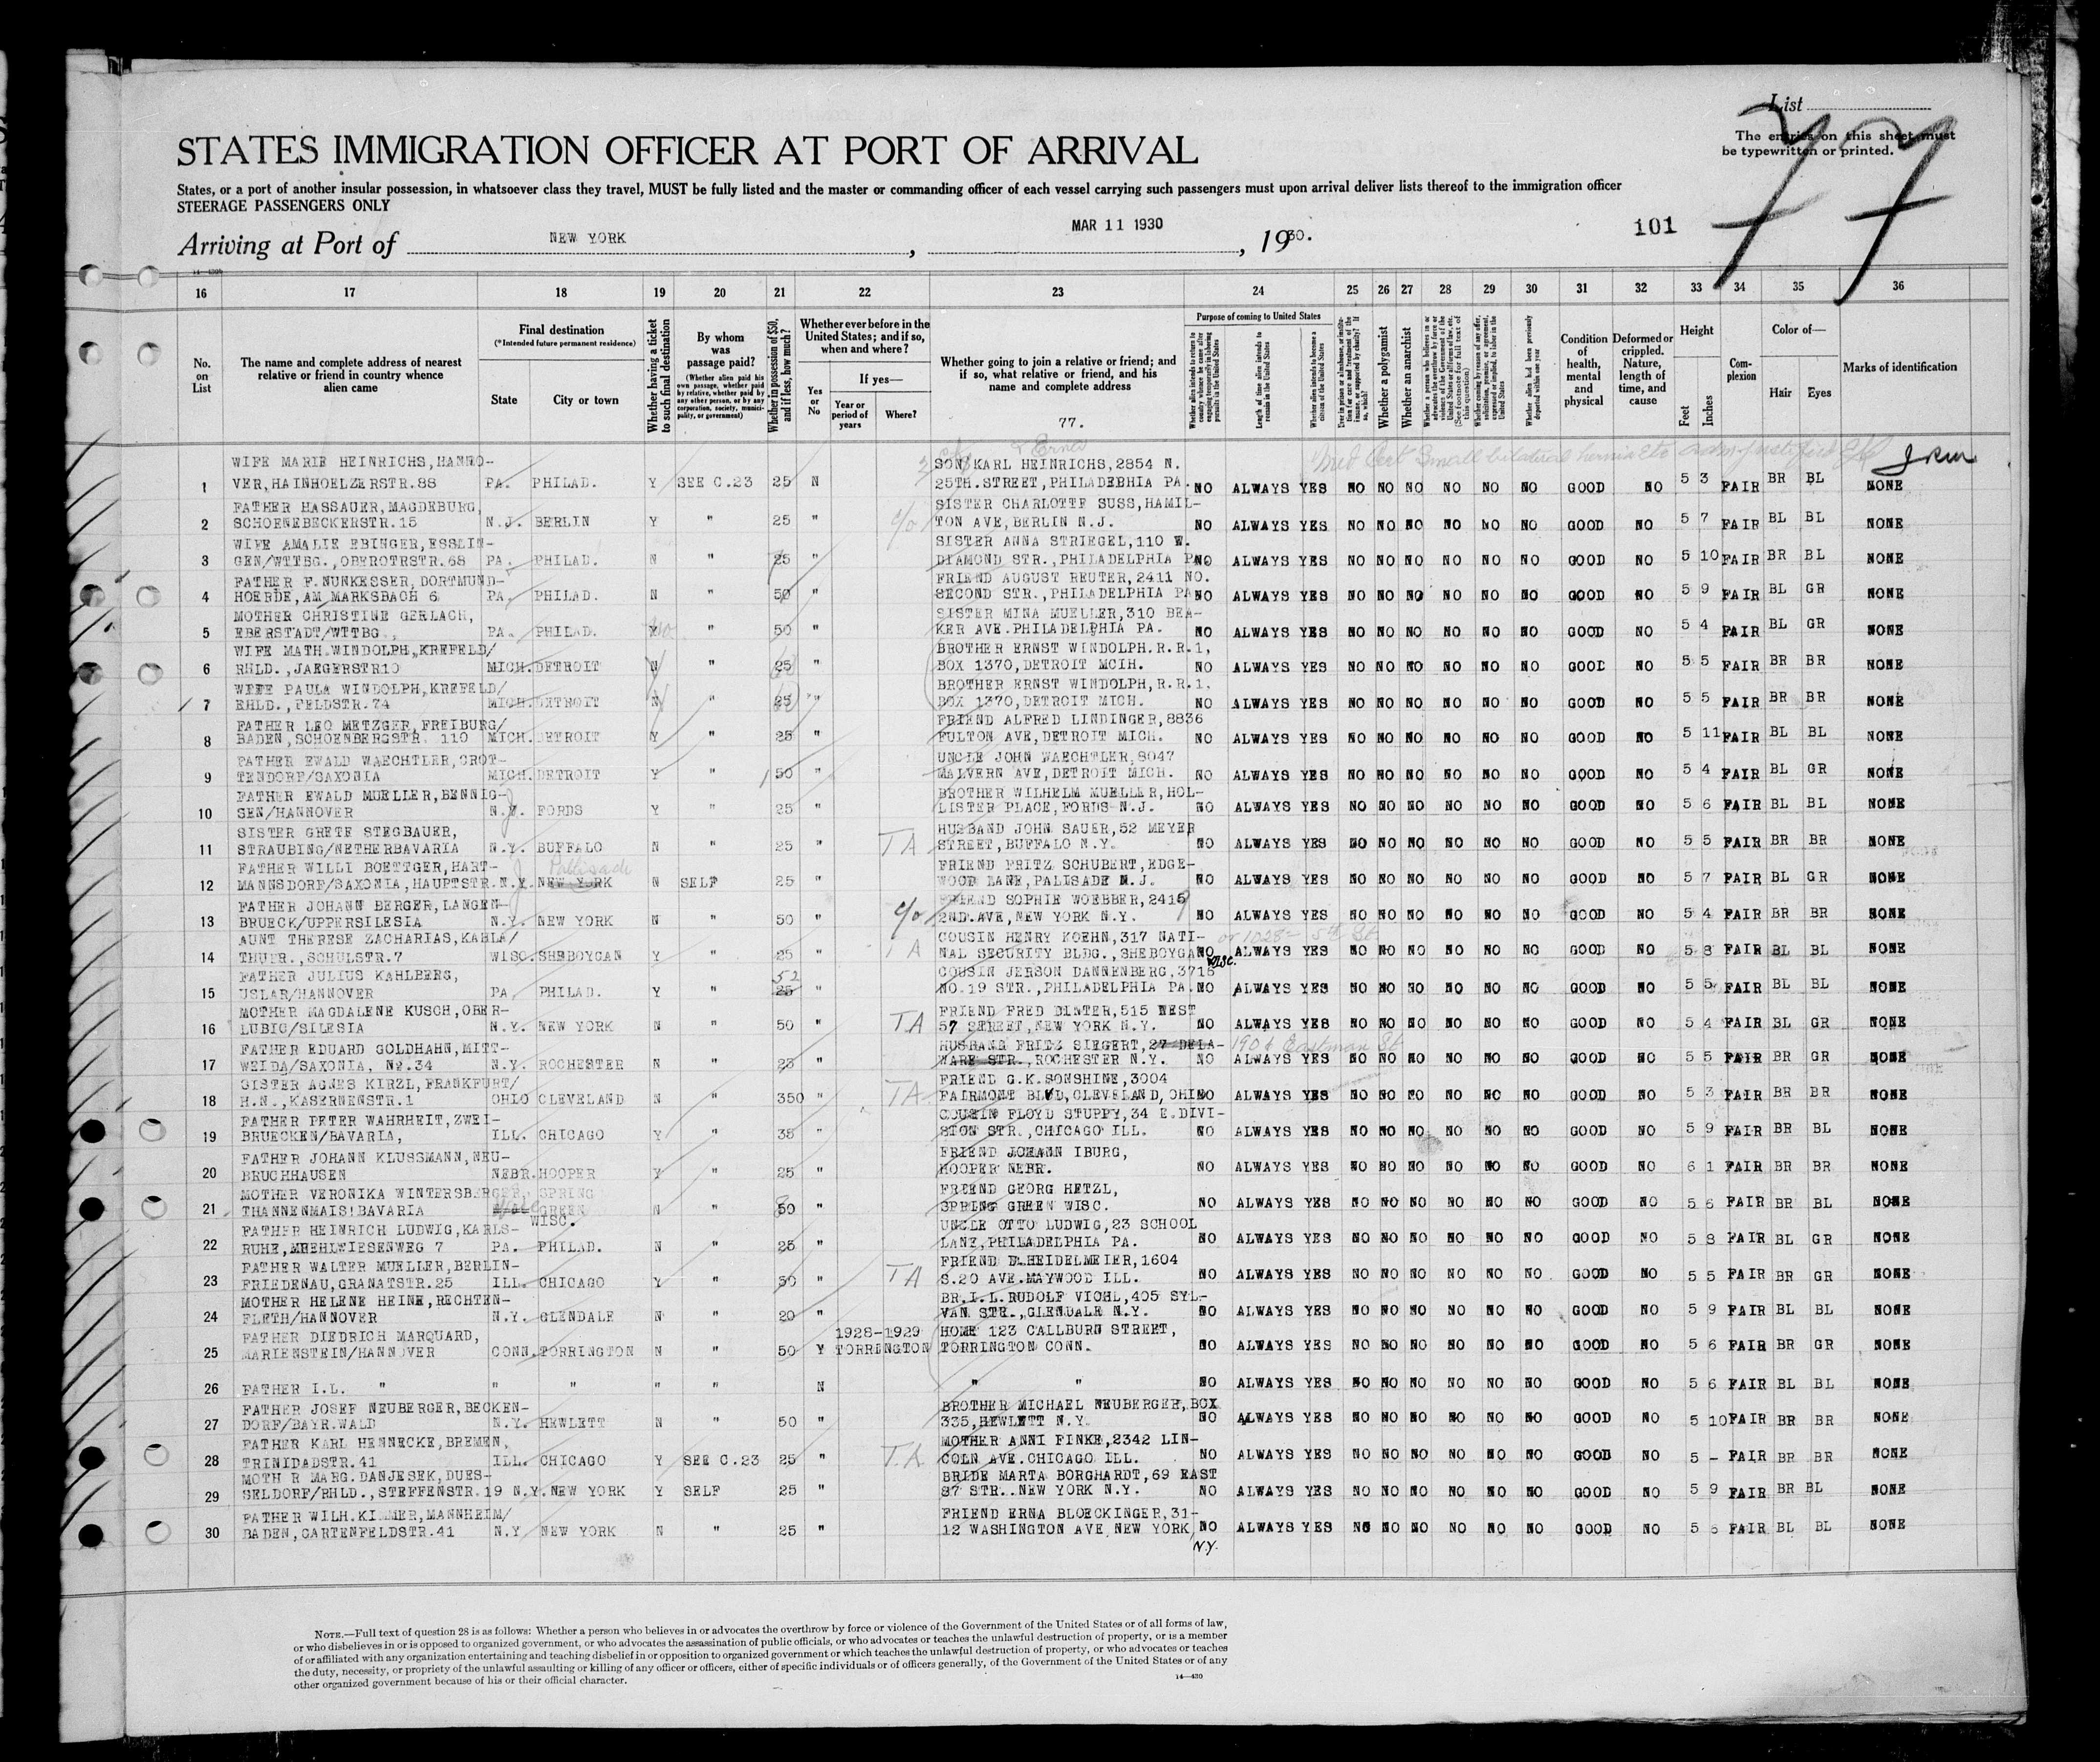 List
The entries on this sheet must
be typewritten or printed.
77
STATES IMMIGRATION OFFICER AT PORT OF ARRIVAL
States, or a port of another insular possession, in whatsoever class they travel, MUST be fully listed and the master or commanding officer of each vessel carrying such passengers must upon arrival deliver lists thereof to the immigration officer
STEERAGE PASSENGERS ONLY
Arriving at Port of NEW YORK, MAR 11 1930, 1930.
101
16 17 18 19 20 21 22 23 24 25 26 27 28 29 30 31 32 33 34 35 36
No. on List
The name and complete address of nearest relative or friend in country whence alien came
Final destination
(*Intended future permanent residence)
State
City or town
Whether having a ticket to such final destination
By whom was passage paid?
(Whether alien paid his own passage, whether paid by relative, whether paid by any other person, or by any corporation, society, municipality, or government)
Whether in possession of $50, and if less, how much?
Whether ever before in the United States; and if so, when and where?
Yes or No
If yes—
Year or period of years
Where?
Whether going to join a relative or friend; and if so, what relative or friend, and his name and complete address
77.
Purpose of coming to United States
Length of time alien intends to remain in the United States
Whether alien intends to become a citizen of the United States
Whether a polygamist
Whether an anarchist
Condition of health, mental and physical
Deformed or crippled. Nature, length of time, and cause
Height
Feet
Inches
Complexion
Color of—
Hair
Eyes
Marks of identification
WIFE MARIE HEINRICHS, HANNO- SON KARL HEINRICHS, 2854 N.
1 VER, HAINHOELZERSTR.88 PA. PHILAD. Y SEE C.23 25 N 25TH.STREET, PHILADEBHIA PA. NO ALWAYS YES NO NO NO NO NO NO GOOD NO 5 3 FAIR BR BL NONE
FATHER HASSAUER, MAGDEBURG, SISTER CHARLOTTE SUSS, HAMIL-
2 SCHOENEBECKERSTR.15 N.J. BERLIN Y " 25 " TON AVE, BERLIN N.J. NO ALWAYS YES NO NO NO NO NO NO GOOD NO 5 7 FAIR BL BL NONE
WIFE AMALIE EBINGER, ESSLIN- SISTER ANNA STRIEGEL, 110 W.
3 GEN/WTTBG., OBEROTRSTR.68 PA. PHILAD. N " 25 " DIAMOND STR., PHILADELPHIA PA. NO ALWAYS YES NO NO NO NO NO NO GOOD NO 5 10 FAIR BR BL NONE
FATHER F. NUNKESSER, DORTMUND- FRIEND AUGUST REUTER, 2411 NO.
4 HOERDE, AM MARKSBACH 6 PA. PHILAD. N " 50 " SECOND STR., PHILADELPHIA PA NO ALWAYS YES NO NO NO NO NO NO GOOD NO 5 9 FAIR BL GR NONE
MOTHER CHRISTINE GERLACH, SISTER MINA MUELLER, 310 BEA-
5 EBERSTADT/WTTBG., PA. PHILAD. " 50 " KER AVE. PHILADELPHIA PA. NO ALWAYS YES NO NO NO NO NO NO GOOD NO 5 4 FAIR BL GR NONE
WIFE MATH. WINDOLPH, KREFELD/ BROTHER ERNST WINDOLPH. R.R.1,
6 RHLD., JAEGERSTR10 MICH. DETROIT N " 25 " BOX 1370, DETROIT MCIH. NO ALWAYS YES NO NO NO NO NO NO GOOD NO 5 5 FAIR BR BR NONE
WIFE PAULA WINDOLPH, KREFELD/ BROTHER ERNST WINDOLPH, R.R.1,
7 RHLD., FELDSTR.74 MICH. DETROIT N " 25 " BOX 1370, DETROIT MICH. NO ALWAYS YES NO NO NO NO NO NO GOOD NO 5 5 FAIR BR BR NONE
FATHER LEO METZGER, FREIBURG/ FRIEND ALFRED LINDINGER, 8836
8 BADEN, SCHOENBERGSTR. 110 MICH. DETROIT Y " 25 " FULTON AVE, DETROIT MICH. NO ALWAYS YES NO NO NO NO NO NO GOOD NO 5 11 FAIR BL BL NONE
FATHER EWALD WAECHTLER, CROT- UNCLE JOHN WAECHTLER, 8047
9 TENDORF/SAXONIA MICH. DETROIT Y " 50 " MALVERN AVE, DETROIT MICH. NO ALWAYS YES NO NO NO NO NO NO GOOD NO 5 4 FAIR BL GR NONE
FATHER EWALD MUELLER, BENNIG- BROTHER WILHELM MUELLER, HOL-
10 SEN/HANNOVER N.J. FORDS Y " 25 " LISTER PLACE, FORDS N.J. NO ALWAYS YES NO NO NO NO NO NO GOOD NO 5 6 FAIR BL BL NONE
SISTER GRETE STEGBAUER, HUSBAND JOHN SAUER, 52 MEYER
11 STRAUBING/NETHERBAVARIA N.Y. BUFFALO N " 25 " TA STREET, BUFFALO N.Y. NO ALWAYS YES NO NO NO NO NO NO GOOD NO 5 5 FAIR BR BR NONE
FATHER WILLI BOETTGER, HART- Pallisade FRIEND FRITZ SCHUBERT, EDGE-
12 MANNSDORF/SAXONIA, HAUPTSTR. N.Y. NEW YORK N SELF 25 " WOOD LANE, PALISADE N.J. NO ALWAYS YES NO NO NO NO NO NO GOOD NO 5 7 FAIR BL GR NONE
FATHER JOHANN BERGER, LANGEN- c/o FRIEND SOPHIE WOEBBER, 2415
13 BRUECK/UPPERSILESIA N.Y. NEW YORK N " 50 " 2ND.AVE, NEW YORK N.Y. NO ALWAYS YES NO NO NO NO NO NO GOOD NO 5 4 FAIR BR BR NONE
AUNT THERESE ZACHARIAS, KAHLA/ COUSIN HENRY KOEHN, 317 NATI- or 1028- 5th St
14 THUER., SCHULSTR.7 WISC. SHEBOYGAN Y " 25 " TA NAL SECURITY BLDG., SHEBOYGAN Wisc. NO ALWAYS YES NO NO NO NO NO NO GOOD NO 5 8 FAIR BL BL NONE
FATHER JULIUS KAHLBERG, 52 COUSIN JERSON DANNENBERG, 3715
15 USLAR/HANNOVER PA. PHILAD. Y " 25 " NO.19 STR., PHILADELPHIA PA. NO ALWAYS YES NO NO NO NO NO NO GOOD NO 5 5 FAIR BL BL NONE
MOTHER MAGDALENE KUSCH, OBER- FRIEND FRED DINTER, 515 WEST
16 LUBIC/SILESIA N.Y. NEW YORK N " 50 " TA 57 STREET, NEW YORK N.Y. NO ALWAYS YES NO NO NO NO NO NO GOOD NO 5 4 FAIR BL GR NONE
FATHER EDUARD GOLDHAHN, MITT- HUSBAND FRITZ SIEGERT, 27 DELA- 190 Eastman St
17 WEIDA/SAXONIA, No.34 N.Y. ROCHESTER N " 25 " WARE STR., ROCHESTER N.Y. NO ALWAYS YES NO NO NO NO NO NO GOOD NO 5 5 FAIR BR GR NONE
SISTER AGNES KIRZL, FRANKFURT/ FRIEND G.K. SONSHINE, 3004
18 H.N., KASERNENSTR.1 OHIO CLEVELAND N " 350 " TA FAIRMONT BLVD, CLEVELAND, OHIO NO ALWAYS YES NO NO NO NO NO NO GOOD NO 5 3 FAIR BR BR NONE
FATHER PETER WAHRHEIT, ZWEI- COUSIN FLOYD STUPPY, 34 E.DIVI-
19 BRUECKEN/BAVARIA, ILL. CHICAGO Y " 35 " SION STR., CHICAGO ILL. NO ALWAYS YES NO NO NO NO NO NO GOOD NO 5 9 FAIR BR BL NONE
FATHER JOHANN KLUSSMANN, NEU- FRIEND JOHANN IBURG,
20 BRUCHHAUSEN NEBR. HOOPER Y " 25 " HOOPER NEBR. NO ALWAYS YES NO NO NO NO NO NO GOOD NO 6 1 FAIR BR BR NONE
MOTHER VERONIKA WINTERSBERGER, SPRING FRIEND GEORG HETZL,
21 THANNENMAIS!BAVARIA GREEN N " 50 " SPRING GREEN WISC. NO ALWAYS YES NO NO NO NO NO NO GOOD NO 5 6 FAIR BR BL NONE
WISC.
FATHER HEINRICH LUDWIG, KARLS- UNCLE OTTO LUDWIG, 23 SCHOOL
22 RUHE, MHEHLWIESENWEG 7 PA. PHILAD. N " 25 " LANE, PHILADELPHIA PA. NO ALWAYS YES NO NO NO NO NO NO GOOD NO 5 8 FAIR BL GR NONE
FATHER WALTER MUELLER, BERLIN- FRIEND E.HEIDELMEIER, 1604
23 FRIEDENAU, GRANATSTR.25 ILL. CHICAGO Y " 50 " TA S.20 AVE. MAYWOOD ILL. NO ALWAYS YES NO NO NO NO NO NO GOOD NO 5 5 FAIR BR GR NONE
MOTHER HELENE HEINE, RECHTEN- BR.I.L. RUDOLF VIOHL, 405 SYL-
24 FLETH/HANNOVER N.Y. GLENDALE N " 20 " VAN STR., GLENDALE N.Y. NO ALWAYS YES NO NO NO NO NO NO GOOD NO 5 9 FAIR BL BL NONE
FATHER DIEDRICH MARQUARD, 1928-1929 HOME 123 CALLBURN STREET,
25 MARIENSTEIN/HANNOVER CONN. TORRINGTON N " 50 Y TORRINGTON TORRINGTON CONN. NO ALWAYS YES NO NO NO NO NO NO GOOD NO 5 6 FAIR BR GR NONE
26 FATHER I.L. " " " " " N " " NO ALWAYS YES NO NO NO NO NO NO GOOD NO 5 6 FAIR BL BL NONE
FATHER JOSEF NEUBERGER, BECKEN- BROTHER MICHAEL NEUBERGER, BOX
27 DORF/BAYR.WALD N.Y. HEWLETT N " 50 " 335, HEWLETT N.Y. NO ALWAYS YES NO NO NO NO NO NO GOOD NO 5 10 FAIR BR BR NONE
FATHER KARL HENNECKE, BREMEN, MOTHER ANNI FINKE, 2342 LIN-
28 TRINIDADSTR.41 ILL. CHICAGO Y SEE C.23 25 " T.A. COLN AVE. CHICAGO ILL. NO ALWAYS YES NO NO NO NO NO NO GOOD NO 5 - FAIR BR BR NONE
MOTH R MARG. DANJESEK, DUES- BRIDE MARTA BORGHARDT, 69 EAST
29 SELDORF/RHLD., STEFFENSTR.19 N.Y. NEW YORK Y SELF 25 " 87 STR..NEW YORK N.Y. NO ALWAYS YES NO NO NO NO NO NO GOOD NO 5 9 FAIR BR BL NONE
FATHER WILH. KIMMER, MANNHEIM/ FRIEND ERNA BLOECKINGER, 31-
30 BADEN, GARTENFELDSTR.41 N.Y NEW YORK N " 25 " 12 WASHINGTON AVE, NEW YORK, NO ALWAYS YES NO NO NO NO NO NO GOOD NO 5 6 FAIR BL BL NONE
N.Y.
NOTE.—Full text of question 28 is as follows: Whether a person who believes in or advocates the overthrow by force or violence of the Government of the United States or of all forms of law,
or who disbelieves in or is opposed to organized government, or who advocates the assassination of public officials, or who advocates or teaches the unlawful destruction of property, or is a member
of or affiliated with any organization entertaining and teaching disbelief in or opposition to organized government or which teaches the unlawful destruction of property, or who advocates or teaches
the duty, necessity, or propriety of the unlawful assaulting or killing of any officer or officers, either of specific individuals or of officers generally, of the Government of the United States or of any
other organized government because of his or their official character.
14—430